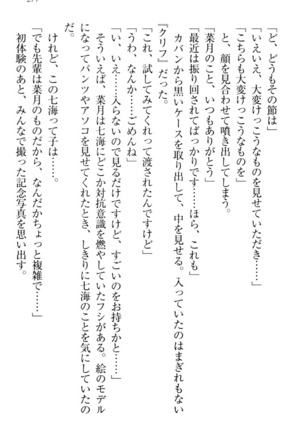 「ど、どうもその節は」
「いえいえ、大変けっこうなものを見せていただき……」
「こちらも大変けっこうなものを」
と、顔を見合わせて噴き出してしまう。
「菜月のこと、いつもありがとう」
「最近は振り回されてばっかりです……ほら、これも」
カバンから黒いケースを取り出して、中を見せる。入っていたのはまぎれもない
『クリフ』だった。
「これ、試してみてくれって渡されたんですけど」
「うわ、なんか……ごめんね」
「い、いえ……入らないので見るだけですけど、すごいのをお持ちかと……」
そういえば、菜月は七海にどこか対抗意識を燃やしていたフシがある。絵のモデル
になってパンツやアソコを見せてくれたとき、しきりに七海のことを気にしていたの
だ。
けれど、この七海って子は……。
「でも先輩は菜月のものだから、なんだかちょっと複雑で……」
初体験のあと、みんなで撮った記念写真を思い出す。